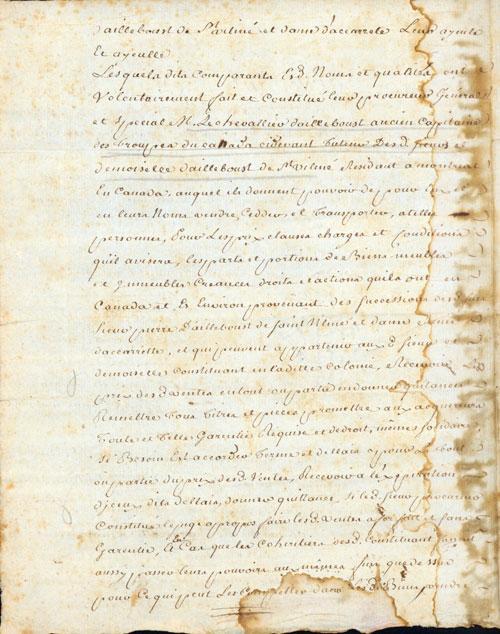 d'ailleboust de St vilmé et dame daccarrete Leur ayeule
Et ayeulle
Lesquels dits Comparants Esd. Noms et qualités ont
Volontairement fait et Constitué leur procureur General
et special M. Le chevallier dailleboust ancien Capitaine
des troupes du canada cidevant tuteur Desd. sieurs et
demoiselle dailleboust de St vilmé Residant a montreal
En Canada, auquel ils donnent pouvoir de pour Eux et
en leurs Noms vendre, Ceder, et transporter, a telles
personnes, Pour Les prix clauses charges et Conditions
qu'il avisera, Les parts et portions de Biens meubles
et Immeubles Creances droits et actions quils ont en
Canada et Es Environ provenant des successions desd.
sieur pierre Dailleboust de saint Vilmé et dame
daccarrette, et qui peuvent appartenir auxd. sieurs et
demoiselle Constituant en laditte Colonie, Recevoir Les
prix desd. ventes en tout ou partie en donner quitances
Remettre tous titres et pieces promettre aux acquereurs
toute et telle Garentie Requise et de droit, même solidaire
si Besoin Est accorder terme et dellais pour
ou partie du prix desd. Ventes, Recevoir a l'Expiration
d'iceux dits dellais, donner quittance, si led. sieur procureur
Constitué le juge apropos faire lesd. ventes a forfait et sans
Garentie, En Cas que les Coheritiers desd. Constituant
aussy passer leurs pouvoirs aux mêmes fins que
pour Ce qui peut Les Compétter dans lesd. Biens